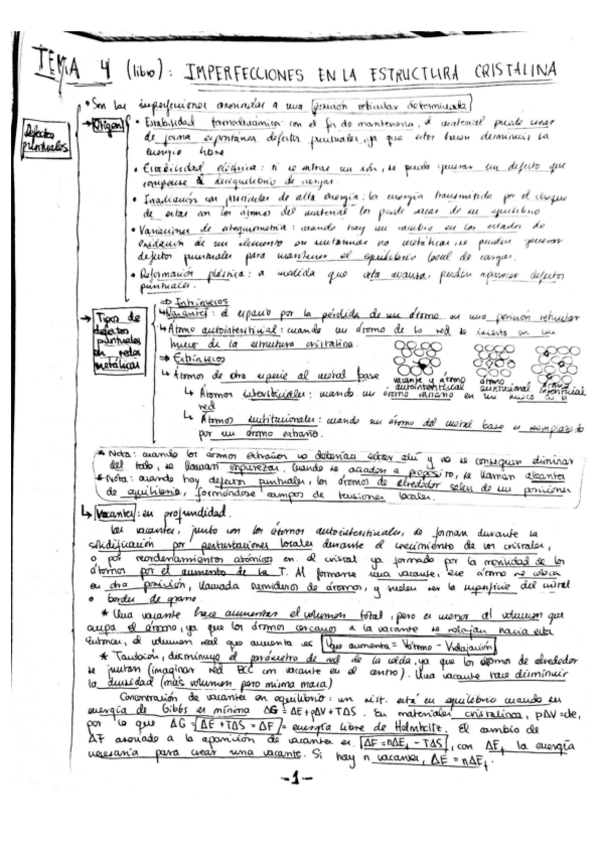 TEMA 4 (libro): IMPERFECCIONES EN LA ESTRUCTURA CRISTALINA
Defectos puntuales
• Son las imperfecciones asociadas a una posición reticular determinada
→ Origen
• Estabilidad termodinámica: con el fin de mantenerla, el material puede crear
de forma espontánea defectos puntuales, ya que estos hacen disminuir la
energía libre
• Estabilidad eléctrica: si se extrae un ión, se puede generar un defecto que
compense el desequilibrio de cargas.
• Irradiación con partículas de alta energía: la energía transmitida por el choque
de estas con los átomos del material los puede sacar de su equilibrio
• Variaciones de estequiometría: cuando hay un cambio en los estados de
oxidación de un elemento en sistemas no metálicos, se pueden generar
defectos puntuales para mantener el equilibrio local de cargas.
• Deformación plástica: a medida que esta avanza, pueden aparecer defectos
puntuales.
→ Tipos de defectos puntuales en redes metálicas
⇒ Intrínsecos
↳ Vacantes: el espacio por la pérdida de un átomo en una posición reticular
↳ Átomo autointersticial: cuando un átomo de la red se inserta en un
hueco de la estructura cristalina.
⇒ Extrínsecos
↳ Átomos de otra especie al metal base
vacante y átomo autointersticial
átomo sustitucional
átomo intersticial
↳ Átomos intersticiales: cuando un átomo extraño en un hueco de la
red
↳ Átomos sustitucionales: cuando un átomo del metal base es reemplazado
por un átomo extraño.
* Nota: cuando los átomos extraños no deberían estar ahí y no se consiguen eliminar
del todo, se llaman impurezas. Cuando se añaden a propósito, se llaman aleantes
* Nota: cuando hay defectos puntuales, los átomos de alrededor salen de sus posiciones
de equilibrio, formándose campos de tensiones locales.
↳ Vacantes: en profundidad.
Las vacantes, junto con los átomos autointersticiales, se forman durante la
solidificación por perturbaciones locales durante el crecimiento de los cristales,
o por reordenamientos atómicos en el cristal ya formado por la movilidad de los
átomos por el aumento de la T. Al formarse una vacante, ese átomo se coloca
en otra posición, llamada sumideros de átomos, y suelen ser la superficie del cristal
o borde de grano.
* Una vacante hace aumentar el volumen total, pero es menor al volumen que
ocupa el átomo, ya que los átomos cercanos a la vacante se relajan hacia esta
el volumen real que aumenta es Vque aumenta = Vátomo - Vrelajación
* También, disminuye el parámetro de red de la celda, ya que los átomos de alrededor
se juntan (imaginar red BCC con vacante en el centro). Una vacante hace disminuir
la densidad (más volumen pero misma masa)
Concentración de vacantes en equilibrio: un sist. está en equilibrio cuando su
energía de Gibbs es mínima ΔG = ΔE + pΔV + TΔS. En materiales cristalinos, pΔV = cte,
por lo que ΔG = ΔE + TΔS = ΔF = energía libre de Helmholtz. El cambio de
ΔF asociado a la aparición de vacantes es ΔF = nΔEf - TΔS, con ΔEf la energía
necesaria para crear una vacante. Si hay n vacantes, ΔE = nΔEf.
-1-